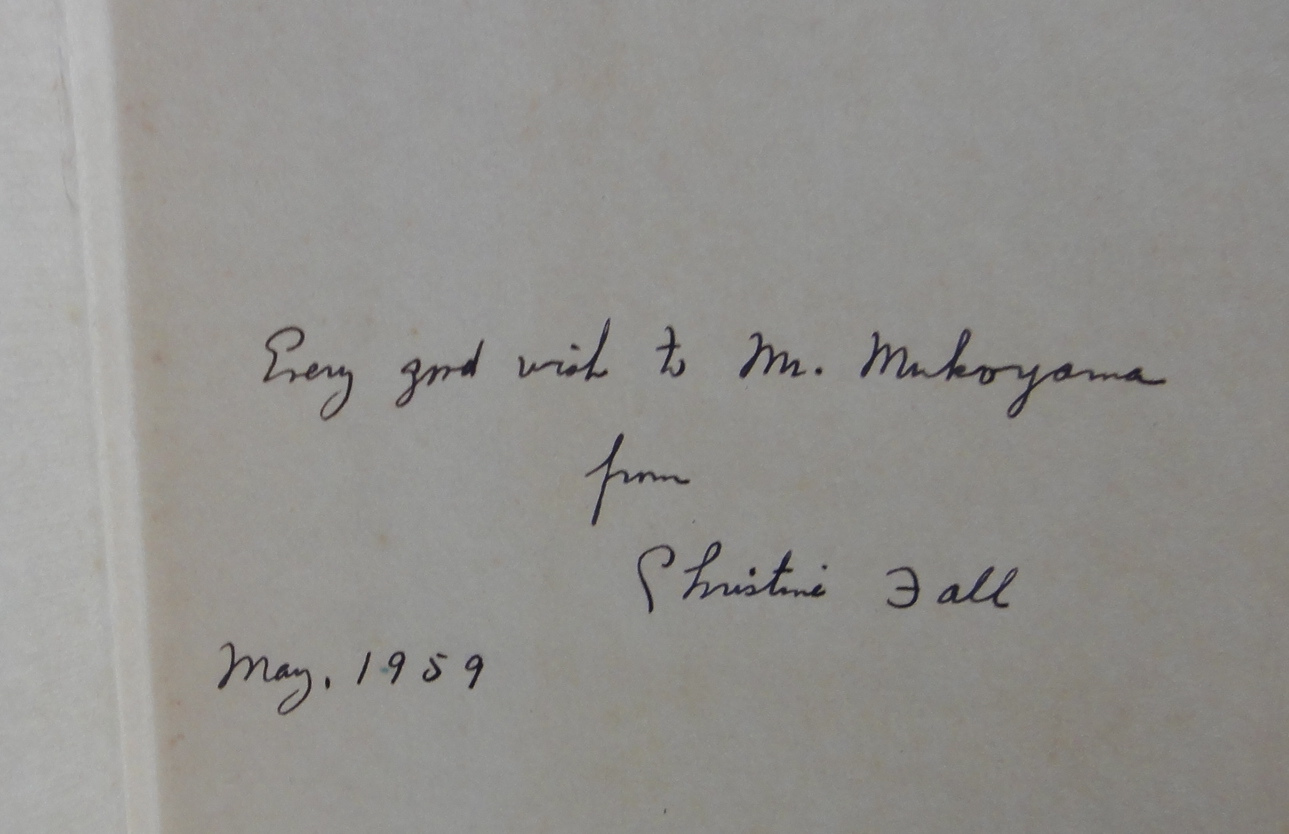 Every good wish to Mr. Mukoyama
from
Christine Fall
May, 1959